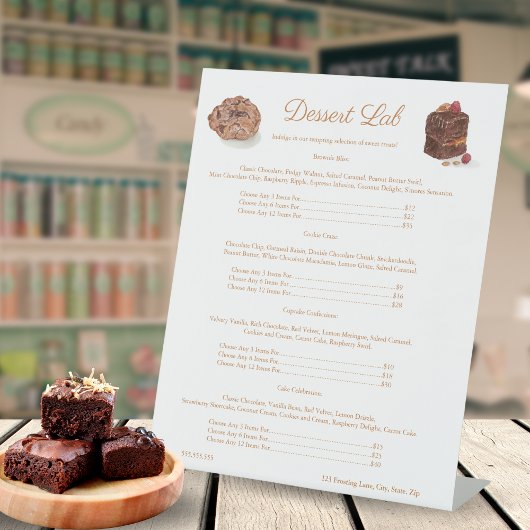 Dessert Lab
Indulge in our tempting selection of sweet treats!
Brownie Bliss:
Classic Chocolate, Fudgy Walnut, Salted Caramel, Peanut Butter Swirl,
Mint Chocolate Chip, Raspberry Ripple, Espresso Infusion, Coconut Delight, S'mores Sensation.
Choose Any 3 Items For $12
Choose Any 6 Items For $22
Choose Any 12 Items For $35
Cookie Craze:
Chocolate Chip, Oatmeal Raisin, Double Chocolate Chunk, Snickerdoodle,
Peanut Butter, White Chocolate Macadamia, Lemon Glaze, Salted Caramel.
Choose Any 3 Items For $9
Choose Any 6 Items For $16
Choose Any 12 Items For $28
Cupcake Confections:
Velvety Vanilla, Rich Chocolate, Red Velvet, Lemon Meringue, Salted Caramel,
Cookies and Cream, Carrot Cake, Raspberry Swirl.
Choose Any 3 Items For $10
Choose Any 6 Items For $18
Choose Any 12 Items For $30
Cake Celebration:
Classic Chocolate, Vanilla Bean, Red Velvet, Lemon Drizzle,
Strawberry Shortcake, Coconut Cream, Cookies and Cream, Raspberry Delight, Carrot Cake.
Choose Any 3 Items For $15
Choose Any 6 Items For $25
Choose Any 12 Items For $40
555.555.555
123 Frosting Lane, City, State, Zip
Candy
SWEET TALK